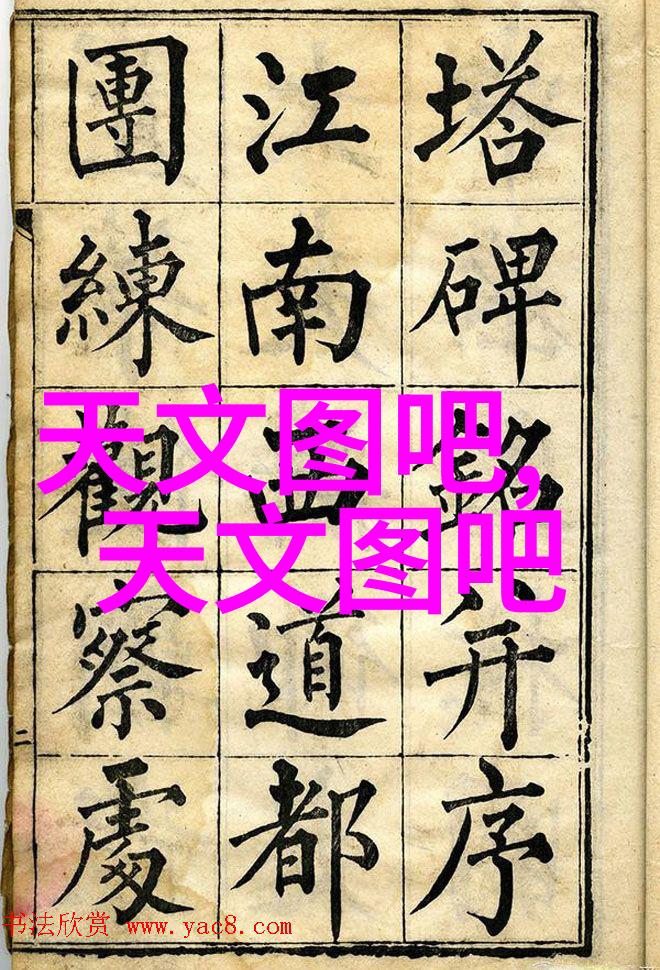 塔碑銘并序
江南西道都
團練觀察處
二
天文图吧,
天文图吧
书法欣赏 www.yac8.com